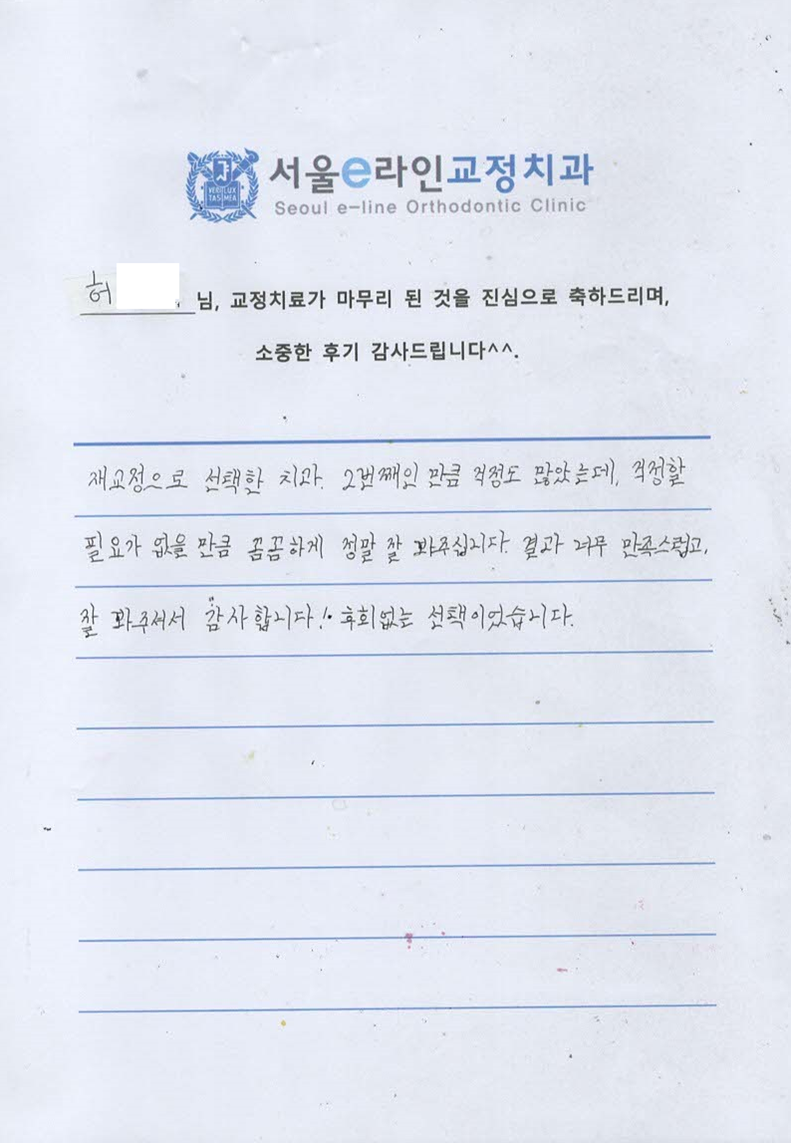 서울e라인교정치과
VERI LUX
TAS MEA
Seoul e-line Orthodontic Clinic
허 님, 교정치료가 마무리 된 것을 진심으로 축하드리며,
소중한 후기 감사드립니다^^.
재교정으로 선택한 치과. 2번째인 만큼 걱정도 많았는데, 걱정할
필요가 없을 만큼 꼼꼼하게 정말 잘 봐주십니다. 결과 너무 만족스럽고,
잘 봐주셔서 감사합니다! 후회없는 선택이었습니다.